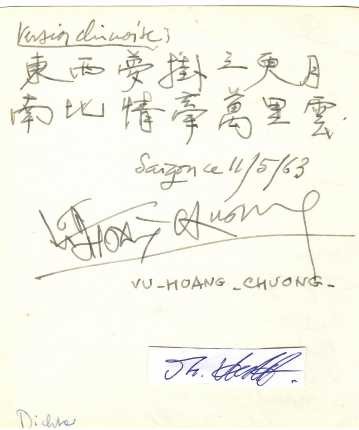 Version chinoise :
東西夢掛三更月
南北情牽萬里雲
Saigon ce 11/5/63
VU-HOANG-CHUONG-
Dichter